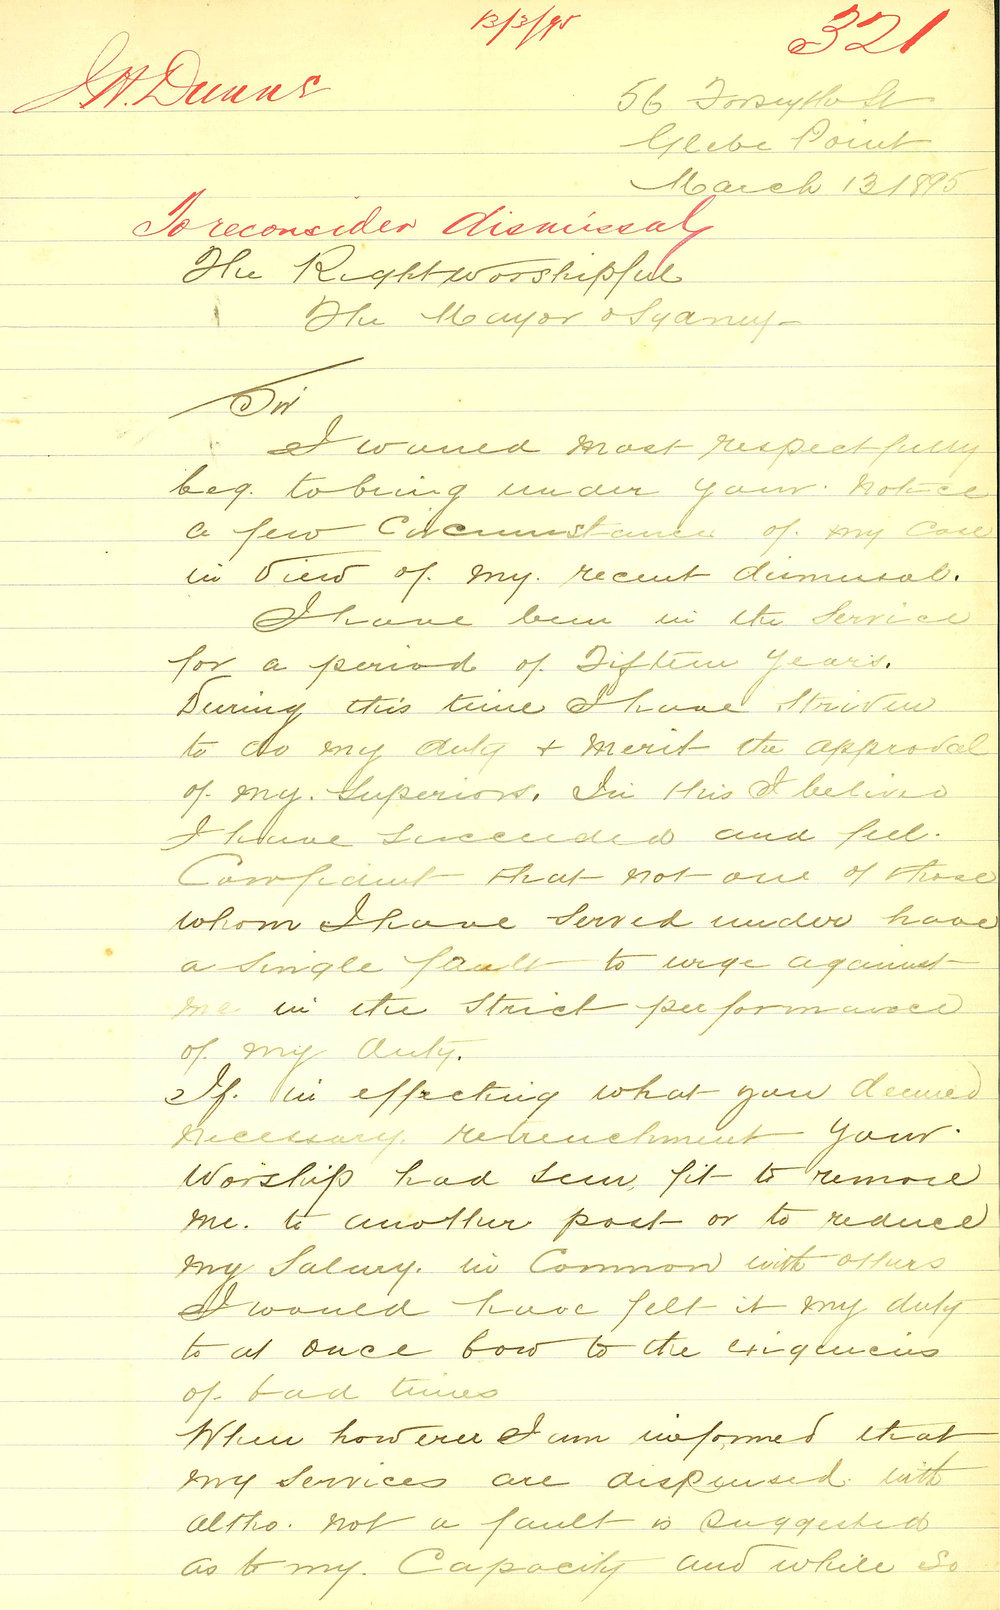 13/3/95
321
J H. Dunne
56 Forsyth St
Glebe Point
March 13 1895
To reconsider dismissal
The Right Worshipful
The Mayor o Sydney
Sir
I would most respectfully
beg. to bring under your. notice
a few Circumstances of. my Case
in View of. my. recent dismissal.
I have been in the Service
for a period of Fifteen Years.
During this time I have Striven
to do my duty & Merit the approval
of. my. Superiors. In this I believe
I have succeeded and feel.
Confident that not one of those
whom I have Served under have
a Single fault to urge against
me in the Strict performance
of. my duty.
If. in effecting what you deemed
necessary. retrenchment Your.
Worship had seen fit to remove
me. to another post or to reduce
my Salary. in Common with others
I would have felt it my duty
to at once bow to the exigencies
of. bad times
When however I am informed that
my Services are dispensed with
altho. not a fault is Suggested
as to my. Capacity and while So